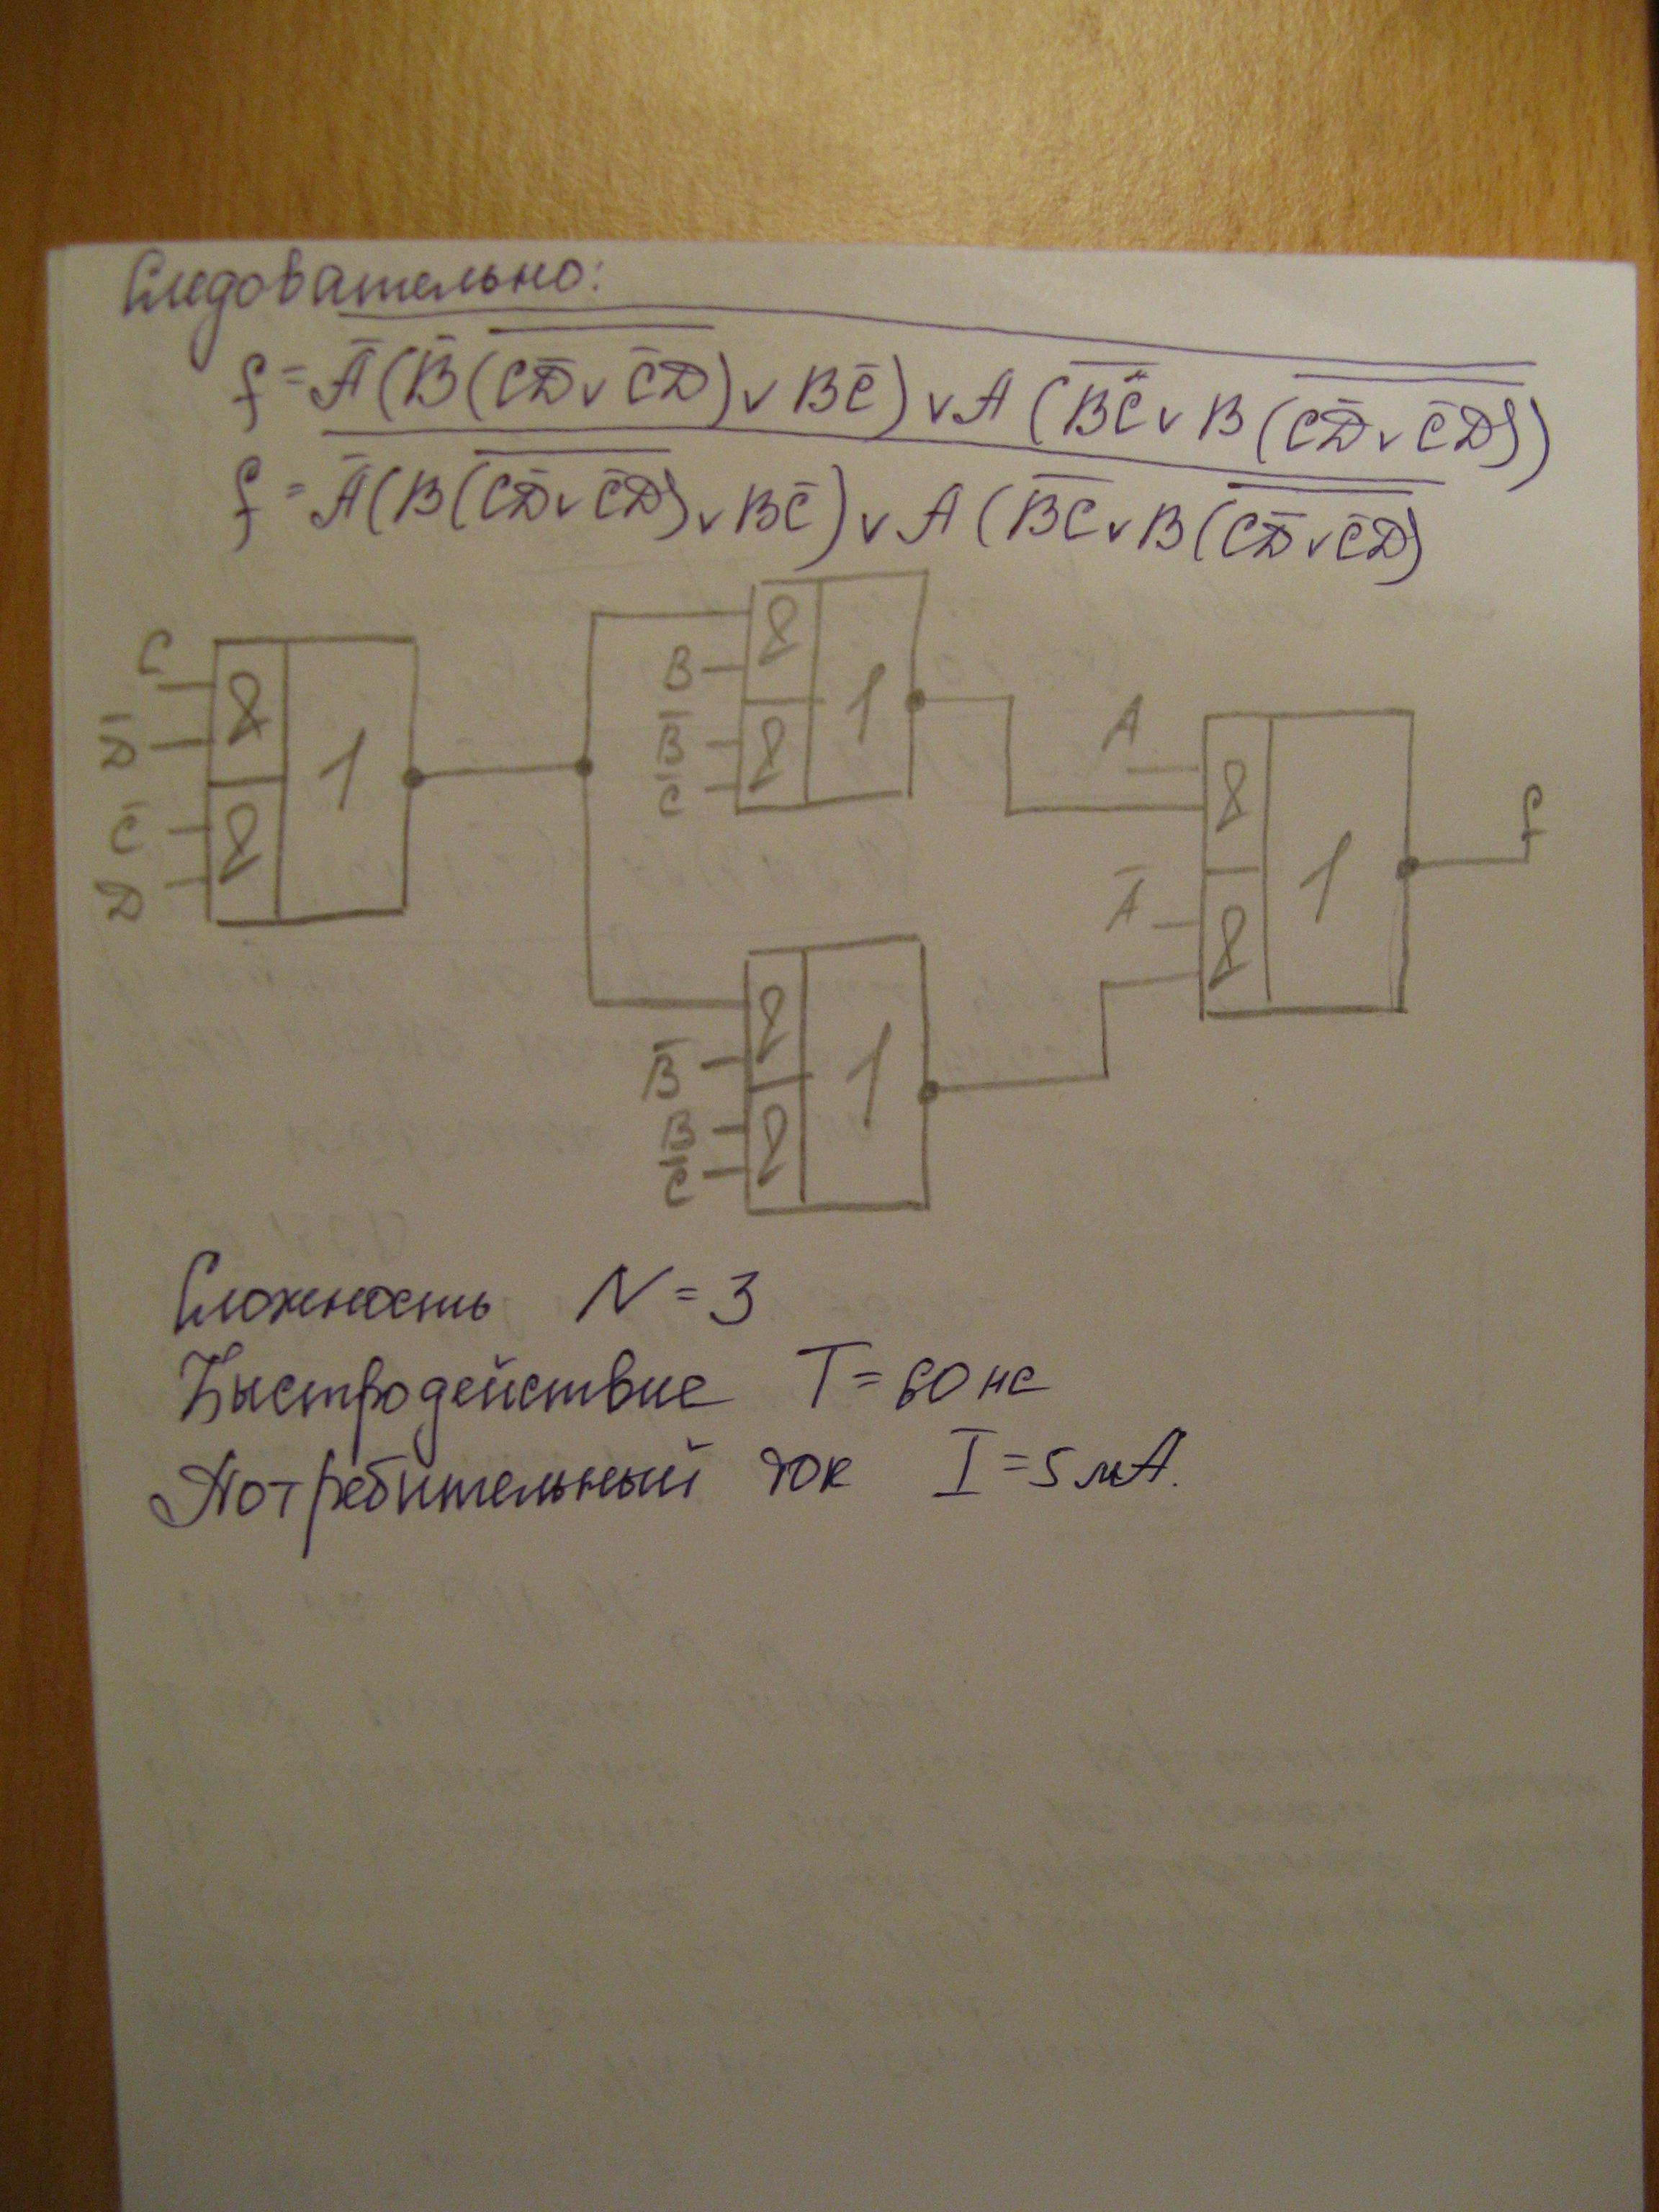 Следовательно:
f = A̅(B̅(CD̅ v C̅D) v BC̅) v A(B̅C̅ v B(CD̅ v C̅D))
f = A̅(B(CD̅ v C̅D) v BC̅) v A(B̅C v B(CD̅ v C̅D)
C
D̅
C̅
D
&
&
1
B
B̅
C̅
&
&
1
B̅
B
C̅
&
&
1
A
A̅
&
&
1
f
Сложность N = 3
Быстродействие T = 60 нс
Потребительный ток I = 5 мА.